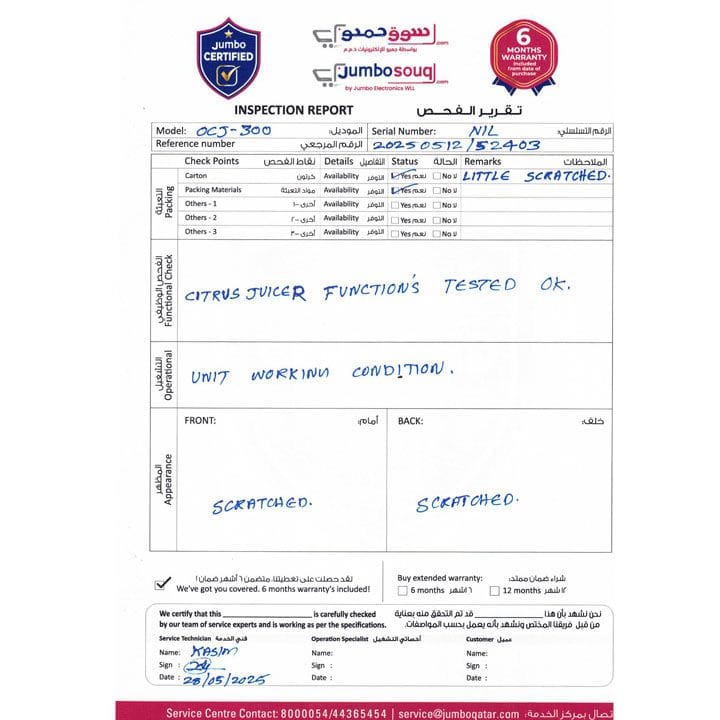 Jumbo
CERTIFIED
سوق جمبو.com
بواسطة جمبو للإلكترونيات ذ.م.م
jumbosouq.com
by Jumbo Electronics WLL
6
MONTHS
WARRANTY
Included
from date of
purchase
INSPECTION REPORT تقرير الفحص
Model: OCJ-300 الموديل: Serial Number: NIL الرقم التسلسلي:
Reference number الرقم المرجعي 20250512/52403
Check Points نقاط الفحص Details التفاصيل Status الحالة Remarks الملاحظات
التعبئة
Packing
Carton كرتون Availability التوفر Yes نعم No لا LITTLE SCRATCHED.
Packing Materials مواد التعبئة Availability التوفر Yes نعم No لا
Others - 1 أخرى -١ Availability التوفر Yes نعم No لا
Others - 2 أخرى -٢ Availability التوفر Yes نعم No لا
Others - 3 أخرى -٣ Availability التوفر Yes نعم No لا
الفحص الوظيفي
Functional Check
CITRUS JUICER FUNCTION'S TESTED OK.
التشغيل
Operational
UNIT WORKING CONDITION.
المظهر
Appearance
FRONT: أمام: BACK: خلف:
SCRATCHED. SCRATCHED.
لقد حصلت على تغطيتنا. متضمن ٦ أشهر ضمان!
We've got you covered. 6 months warranty's included!
Buy extended warranty: شراء ضمان ممتد:
6 months ٦ اشهر 12 months ١٢ شهر
We certify that this ____ is carefully checked
by our team of service experts and is working as per the specifications.
نحن نشهد بأن هذا ____ قد تم التحقق منه بعناية
من قبل فريقنا المختص ونشهد بأنه يعمل بحسب المواصفات.
Service Technician فني الخدمة Operation Specialist أخصائي التشغيل Customer عميل
Name: KASIM Name: Name:
Sign : Sign : Sign :
Date : 28/05/2025 Date : Date :
Service Centre Contact: 8000054/44365454 | service@jumboqatar.com تصال بمركز الخدمة: